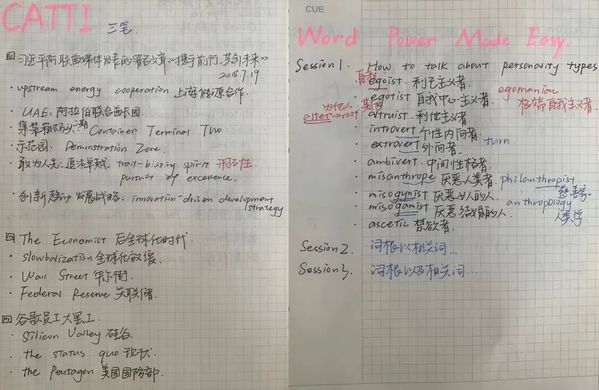 CATTI 三笔
习近平阿联酋媒体发表的署名文章《携手前行,共创未来》
2018.7.19
· upstream energy cooperation 上游能源合作.
· UAE. 阿拉伯联合酋长国.
· 集装箱码头二期 Container Terminal Two
· 示范园. Demonstration Zone.
· 敢为人先.追求卓越. trail-blazing spirit 开拓性.
pursuit of excellence.
· 创新驱动发展战略. innovation-driven development
strategy
The Economist 后全球化时代.
· slowbalization 全球化放缓.
· Wall Street 华尔街.
· Federal Reserve 美联储.
谷歌员工大罢工.
· Silicon Valley 硅谷.
· the status quo 现状.
· the Pentagon 美国国防部.
CUE
Word Power Made Easy.
Session 1. How to talk about personality types
自我
· egoist. 利己主义者.
· egotist 自我中心主义者. egomaniac
极端自我主义者.
alter→root
· altruist 利他主义者.
· introvert 个性内向者.
· extrovert 外向者. turn.
· ambivert. 中间性格者.
· misanthrope 厌恶人类者. philanthropist
慈善家.
· misogynist 厌恶女人的人. anthropology
人类学
· misogamist 厌恶结婚的人.
· ascetic 禁欲者.
Session 2. 词根以相关词...
Session 3. 词根以及相关词...